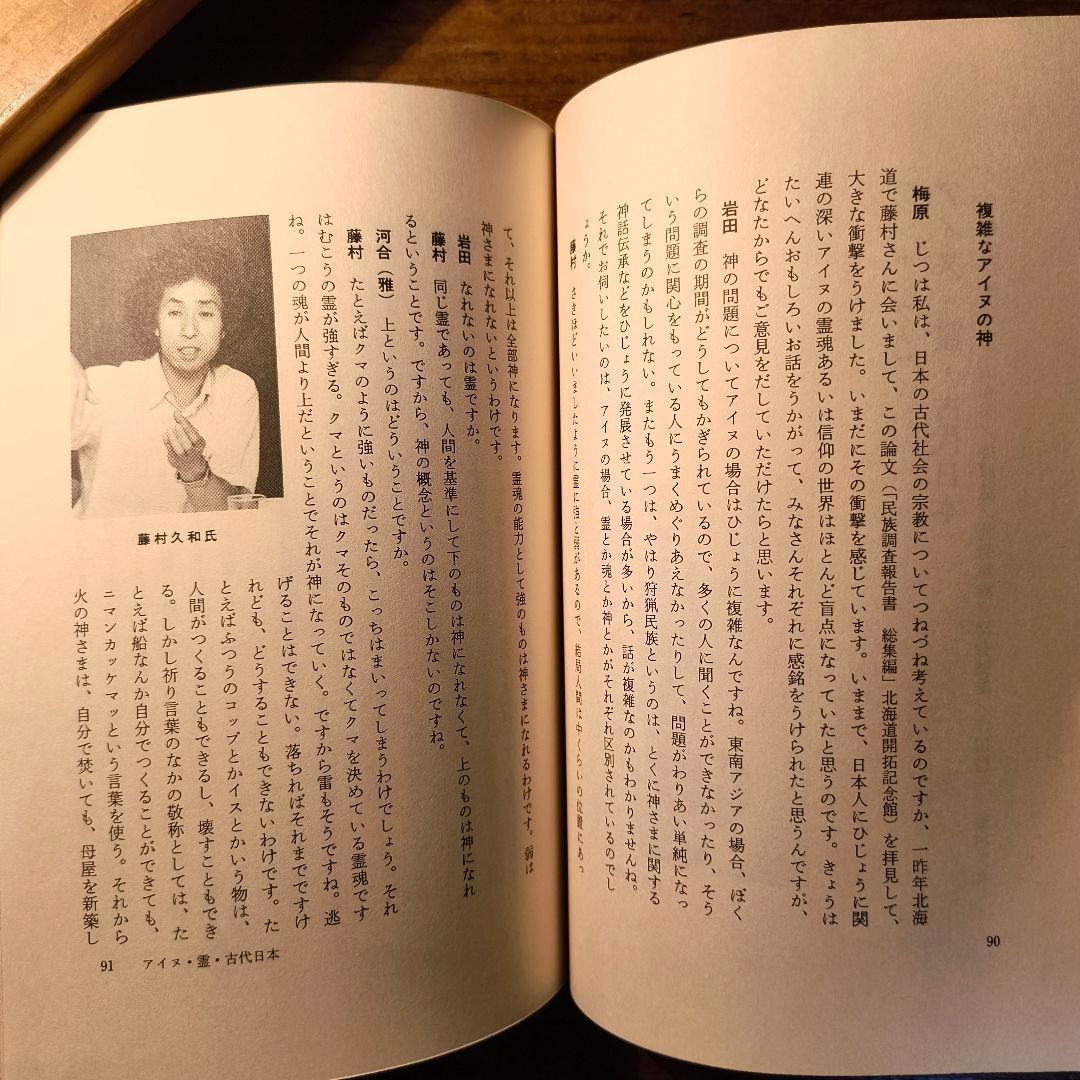 複雑なアイヌの神
梅原　じつは私は、日本の古代社会の宗教についてつねづね考えているのですか、一昨年北海
道で藤村さんに会いまして、この論文(「民族調査報告書　総集編」北海道開拓記念館)を拝見して、
大きな衝撃をうけました。いまだにその衝撃を感じています。いままで、日本人にひじょうに関
連の深いアイヌの霊魂あるいは信仰の世界はほとんど盲点になっていたと思うのです。きょうは
たいへんおもしろいお話をうかがって、みなさんそれぞれに感銘をうけられたと思うんですが、
どなたからでもご意見をだしていただけたらと思います。
岩田　神の問題についてアイヌの場合はひじょうに複雑なんですね。東南アジアの場合、ぼく
らの調査の期間がどうしてもかぎられているので、多くの人に聞くことができなかったり、そう
いう問題に関心をもっている人にうまくめぐりあえなかったりして、問題がわりあい単純になっ
てしまうのかもしれない。またもう一つは、やはり狩猟民族というのは、とくに神さまに関する
神話伝承などをひじょうに発展させている場合が多いから、話が複雑なのかもわかりませんね。
それでお伺いしたいのは、アイヌの場合、霊とか魂とか神とかがそれぞれ区別されているのでし
ょうか。
藤村　さきほどいいましたように霊に強と弱があるので、結局人間は中くらいの位置にあっ
90
て、それ以上は全部神になります。霊魂の能力として強のものは神さまになれるわけです。弱は
神さまになれないというわけです。
岩田　なれないのは霊ですか。
藤村　同じ霊であっても、人間を基準にして下のものは神になれなくて、上のものは神になれ
るということです。ですから、神の概念というのはそこしかないのですね。
河合(雅)　上というのはどういうことですか。
藤村　たとえばクマのように強いものだったら、こっちはまいってしまうわけでしょう。それ
はむこうの霊が強すぎる。クマというのはクマそのものではなくてクマを決めている霊魂です
ね。一つの魂が人間より上だということでそれが神になっていく。ですから雷もそうですね。逃
げることはできない。落ちればそれまでですけ
れども、どうすることもできないわけです。た
とえばふつうのコップとかイスとかいう物は、
人間がつくることもできるし、壊すこともでき
る。しかし祈り言葉のなかの敬称としては、た
とえば船なんか自分でつくることができても、
ニマンカッケマッという言葉を使う。それから
火の神さまは、自分で焚いても、母屋を新築し
藤村久和氏
91　アイヌ・霊・古代日本